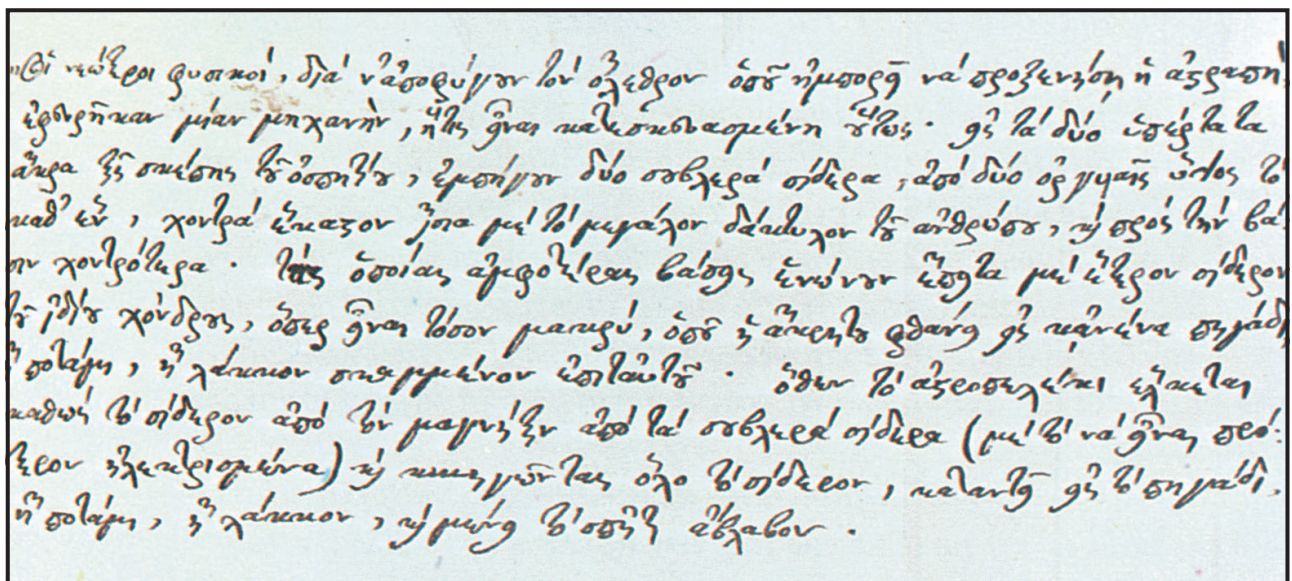 "Οἱ νεώτεροι φυσικοί, διὰ ν' ἀποφύγουν τὸν ὄλεθρον ὁποῦ ἠμπορεῖ νὰ προξενήσῃ ἡ ἀστραπή,
ἐφευρῆκαν μίαν μηχανήν, ἥτις εἶναι κατεσκευασμένη οὕτως· εἰς τὰ δύο ὑπέρτατα
ἄκρα τῆς σκέπης τοῦ ὁσπητίου, ἐμπήγουν δύο σουβλερὰ σίδερα, ἀπὸ δύο ὀργυιαῖς ὕψος τὸ
καθ' ἕν, χοντρὰ ἕκαστον ἴσια μὲ τὸ μεγάλον δάκτυλον τοῦ ἀνθρώπου, καὶ πρὸς τὴν βά-
σιν χοντρότερα. τὰς ὁποίας ἀμφοτέρας βάσεις ἑνώνουν ἔπειτα μὲ ἕτερον σίδερον
τοῦ ἰδίου χόνδρους, ὅπερ εἶναι τόσον μακρύ, ὁποῦ ἡ ἄκρη του φθάνει εἰς κᾀνένα πηγάδι,
ἢ ποτάμι, ἢ λάκκον σκαμμένον ἐπιταυτοῦ. ὅθεν τὸ ἀστροπελέκι ἑλκεται
καθὼς τὸ σίδερον ἀπὸ τὸν μαγνήτην ἀπὸ τὰ σουβλερὰ σίδερα (μὲ τὸ νὰ εἶναι πρό-
τερον ἠλεκτρισμένα) καὶ κυνηγῶντας ὅλο τὸ σίδερον, καταντᾷ εἰς τὸ πηγάδι,
ἢ ποτάμι, ἢ λάκκον, καὶ μένει τὸ σπῆτι ἄβλαβον.